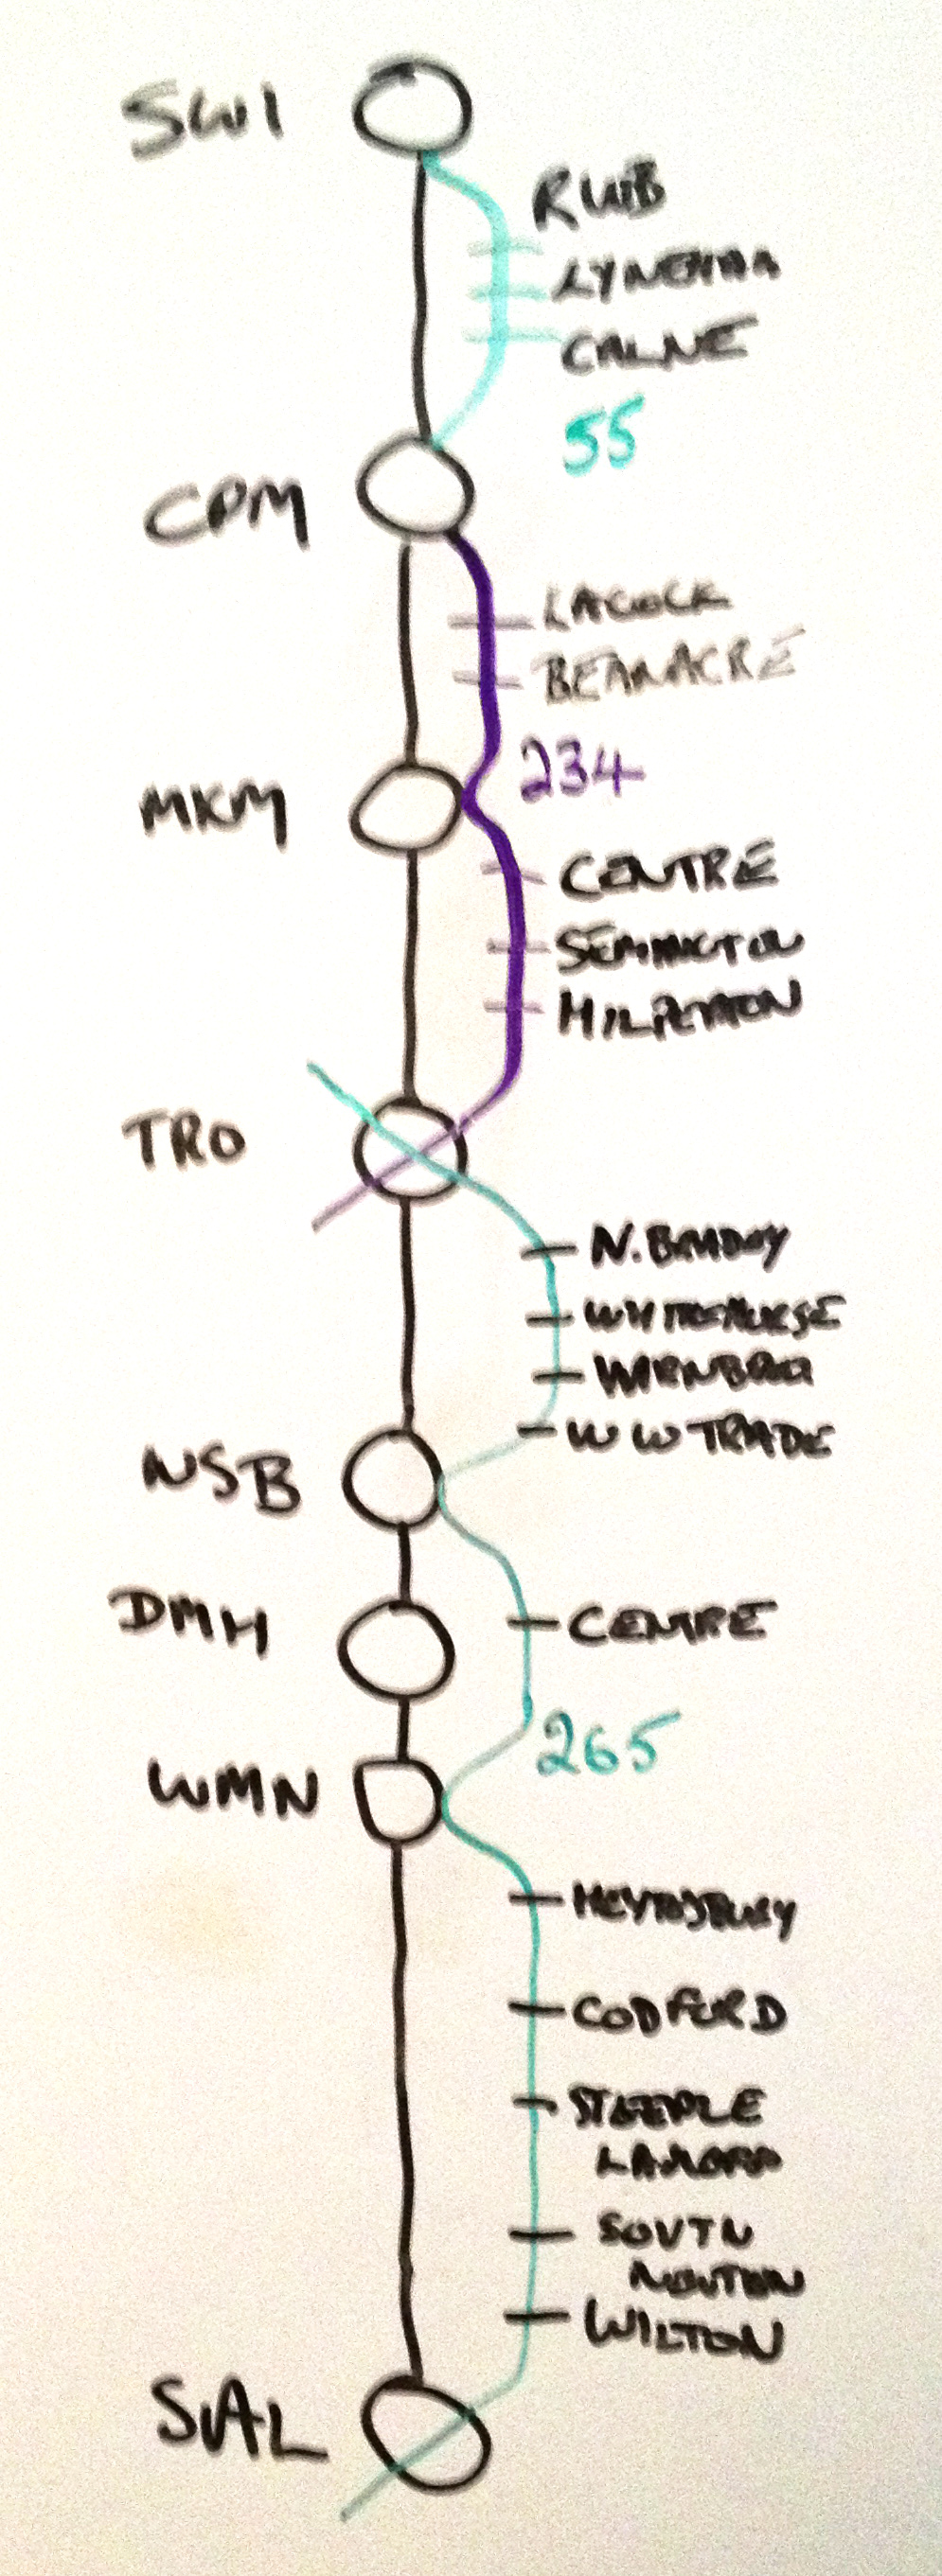 SWI
RWB
LYNEHAM
CALNE
55
CPM
LACOCK
BEANACRE
234
MKM
CENTRE
SEMINGTON
HILPERTON
TRO
N. BRADLEY
WHITEHORSE
W W TRADE
NSB
DMH
CENTRE
265
WMN
HEYTESBURY
CODFORD
STEEPLE
LANGFORD
SOUTH
NEWTON
WILTON
SAL